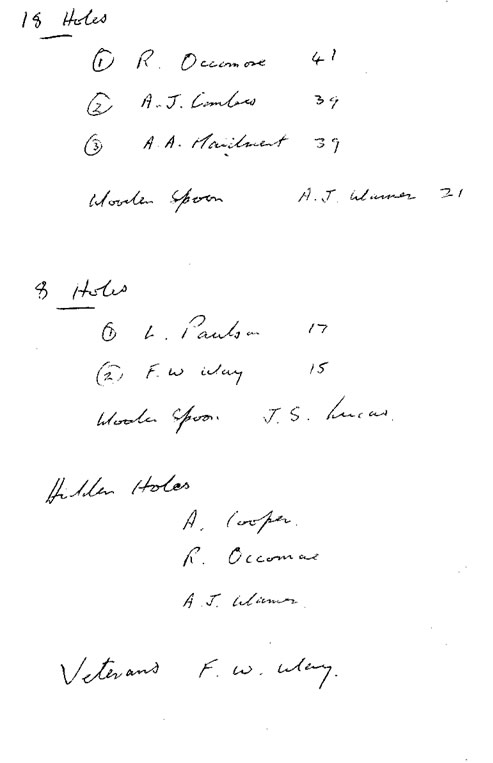 18 Holes
① R. Occomore 41
② A.J. Coombes 39
③ A.A. Maidment 39
Wooden Spoon A.J. Warner 21
8 Holes
① L. Paulson 17
② F.W Way 15
Wooden Spoon J.S. Lucas.
Hidden Holes
A. Cooper.
R. Occomore
A.J. Warner.
Veterans F.W. Way.